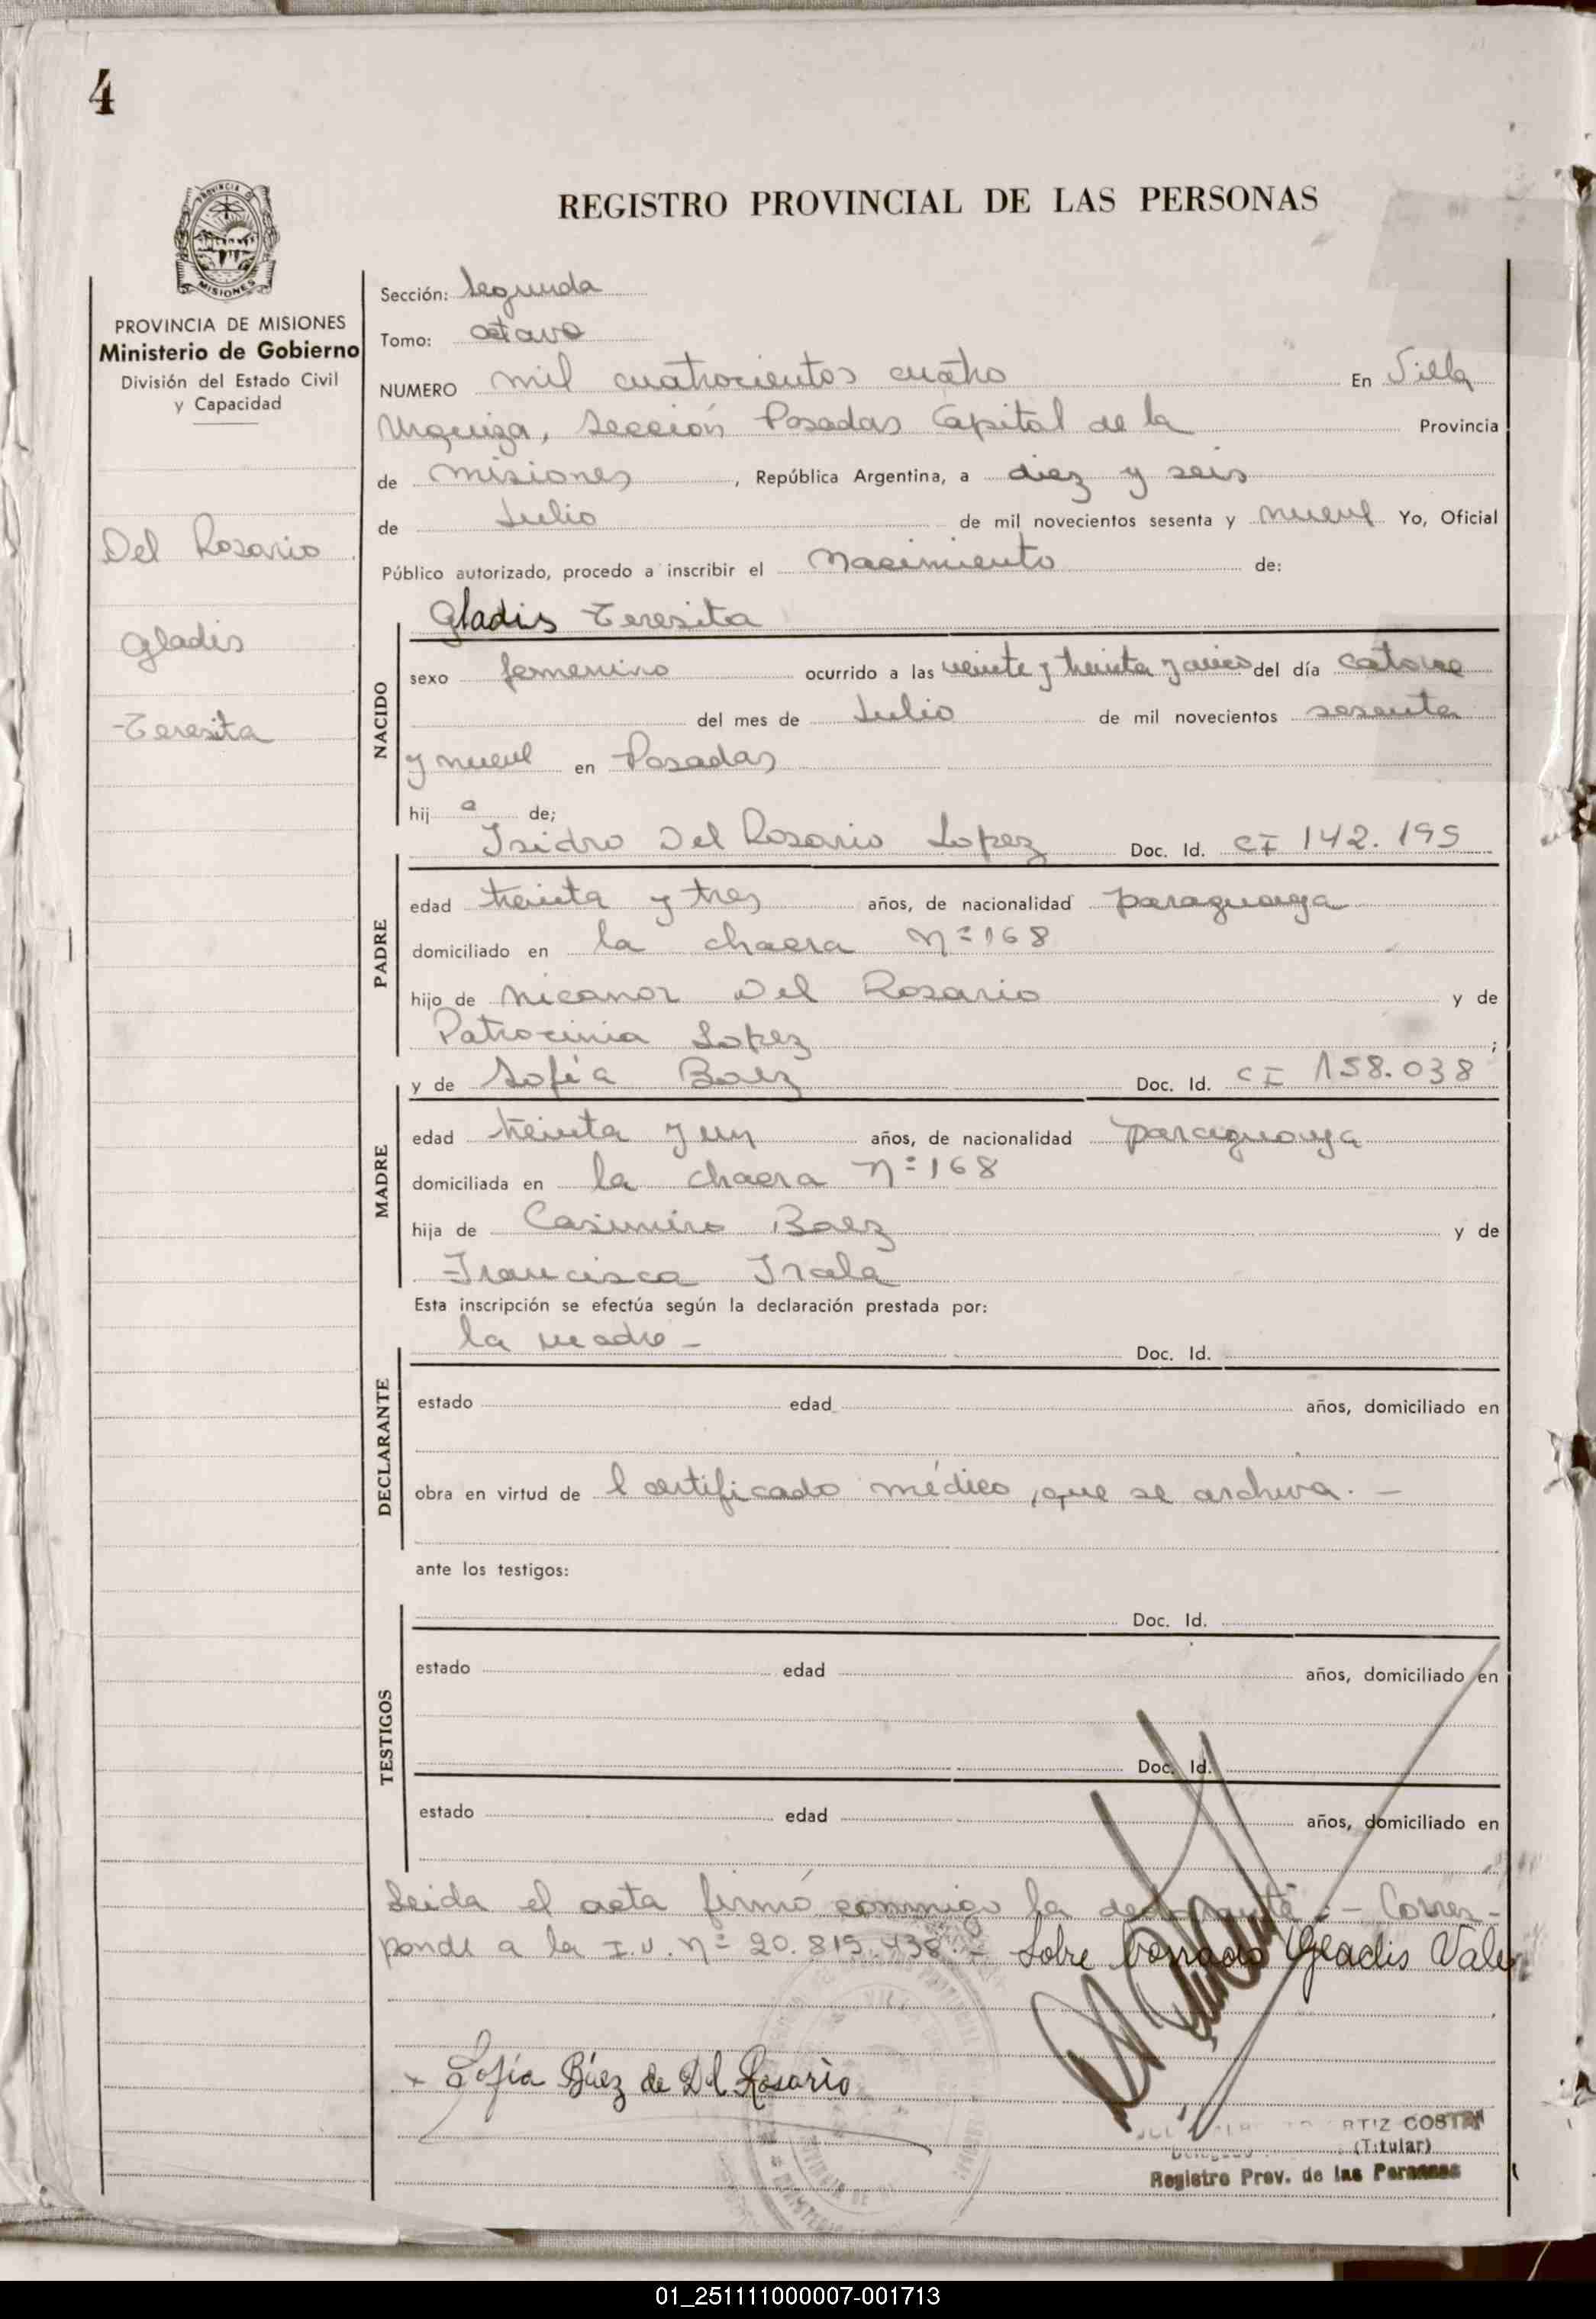 4
PROVINCIA DE
MISIONES
PROVINCIA DE MISIONES
Ministerio de Gobierno
División del Estado Civil
y Capacidad
Del Rosario
Gladis
Teresita
REGISTRO PROVINCIAL DE LAS PERSONAS
Sección: Segunda
Tomo: octavo
NUMERO mil cuatrocientos cuatro En Villa
Urquiza, Sección Posadas Capital de la Provincia
de Misiones, República Argentina, a diez y seis
de Julio de mil novecientos sesenta y nueve Yo, Oficial
Público autorizado, procedo a inscribir el Nacimiento de:
Gladis Teresita
NACIDO
sexo femenino ocurrido a las veinte y treinta y cinco del día catorce
del mes de Julio de mil novecientos sesenta
y nueve en Posadas
hija de;
Isidro Del Rosario Lopez Doc. Id. CI 142.195
PADRE
edad treinta y tres años, de nacionalidad paraguaya
domiciliado en la chacra Nº 168
hijo de Nicanor Del Rosario y de
Patrocinia Lopez;
y de Sofía Baez Doc. Id. CI 158.038
MADRE
edad treinta y un años, de nacionalidad paraguaya
domiciliada en la chacra Nº 168
hija de Casimiro Baez y de
Francisca Irala
Esta inscripción se efectúa según la declaración prestada por:
la madre - Doc. Id.
DECLARANTE
estado edad años, domiciliado en
obra en virtud de l certificado médico, que se archiva. -
ante los testigos:
Doc. Id.
TESTIGOS
estado edad años, domiciliado en
Doc. Id.
estado edad años, domiciliado en
Leida el acta firmó conmigo la declarante. - Corres-
ponde a la I.U. Nº 20.819.438. - Sobre borrado Gladis Vale
x Sofía Báez de Del Rosario
ORTIZ COSTA
(Titular)
Registro Prov. de las Personas
01_251111000007-001713